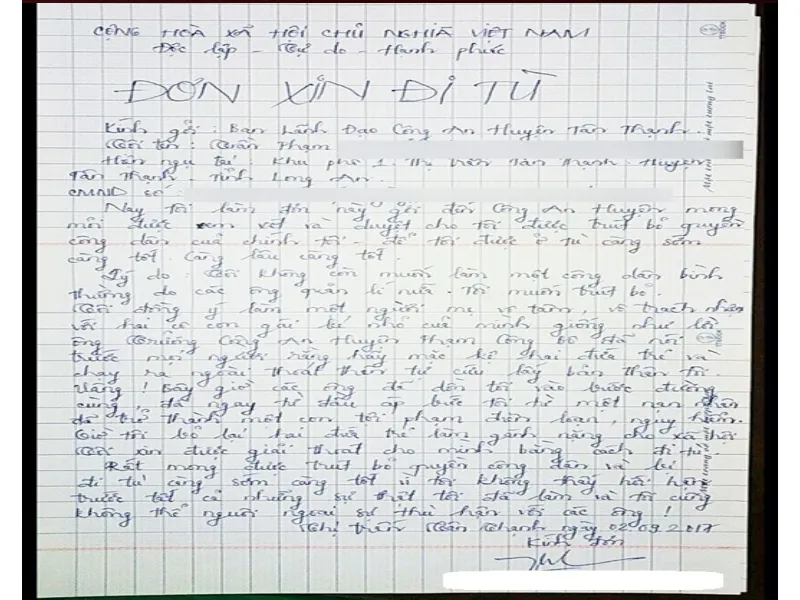 CỘNG HOÀ XÃ HỘI CHỦ NGHĨA VIỆT NAM
Độc lập - Tự do - Hạnh phúc
ĐƠN XIN ĐI TÙ
Kính gửi : Ban Lãnh Đạo Công An Huyện Tân Thạnh.
Tôi tên : Trần Phạm
Hiện ngụ tại : Khu phố 1. Thị trấn Tân Thạnh. Huyện
Tân Thạnh. Tỉnh Long An.
CMND số:
Nay tôi làm đơn này gửi đến Công An Huyện mong
mỏi được xem xét và duyệt cho tôi được trút bỏ quyền
công dân của chính tôi - để tôi được ở tù càng sớm
càng tốt. Càng lâu càng tốt.
Lý do : Tôi không còn muốn làm một công dân bình
thường do các ông quản lí nữa. Tôi muốn trút bỏ.
Tôi đồng ý làm một người mẹ vô tâm, vô trách nhiệm
với hai cô con gái bé nhỏ của mình giống như lời
ông Trưởng Công An Huyện Phạm Công Bộ đã nói
trước mọi người rằng hãy mặc kệ hai đứa trẻ và
chạy ra ngoài thoát thân tự cứu lấy bản thân tôi.
Vâng ! Bây giờ các ông đã dồn tôi vào bước đường
cùng, đã ngay từ đầu áp bức tôi từ một nạn nhân
đã trở thành một con tội phạm điên loạn, nguy hiểm.
Giờ tôi bỏ lại hai đứa trẻ làm gánh nặng cho xã hội
Tôi xin được giải thoát cho mình bằng cách đi tù.
Rất mong được trút bỏ quyền công dân và bị
đi tù càng sớm càng tốt vì tôi không thấy hối hận
trước tất cả những sự thật tôi đã làm và tôi cũng
không thể nguôi ngoai sự thù hận với các ông !
Thị trấn Tân Thạnh ngày 02.09.2017
Kính đơn